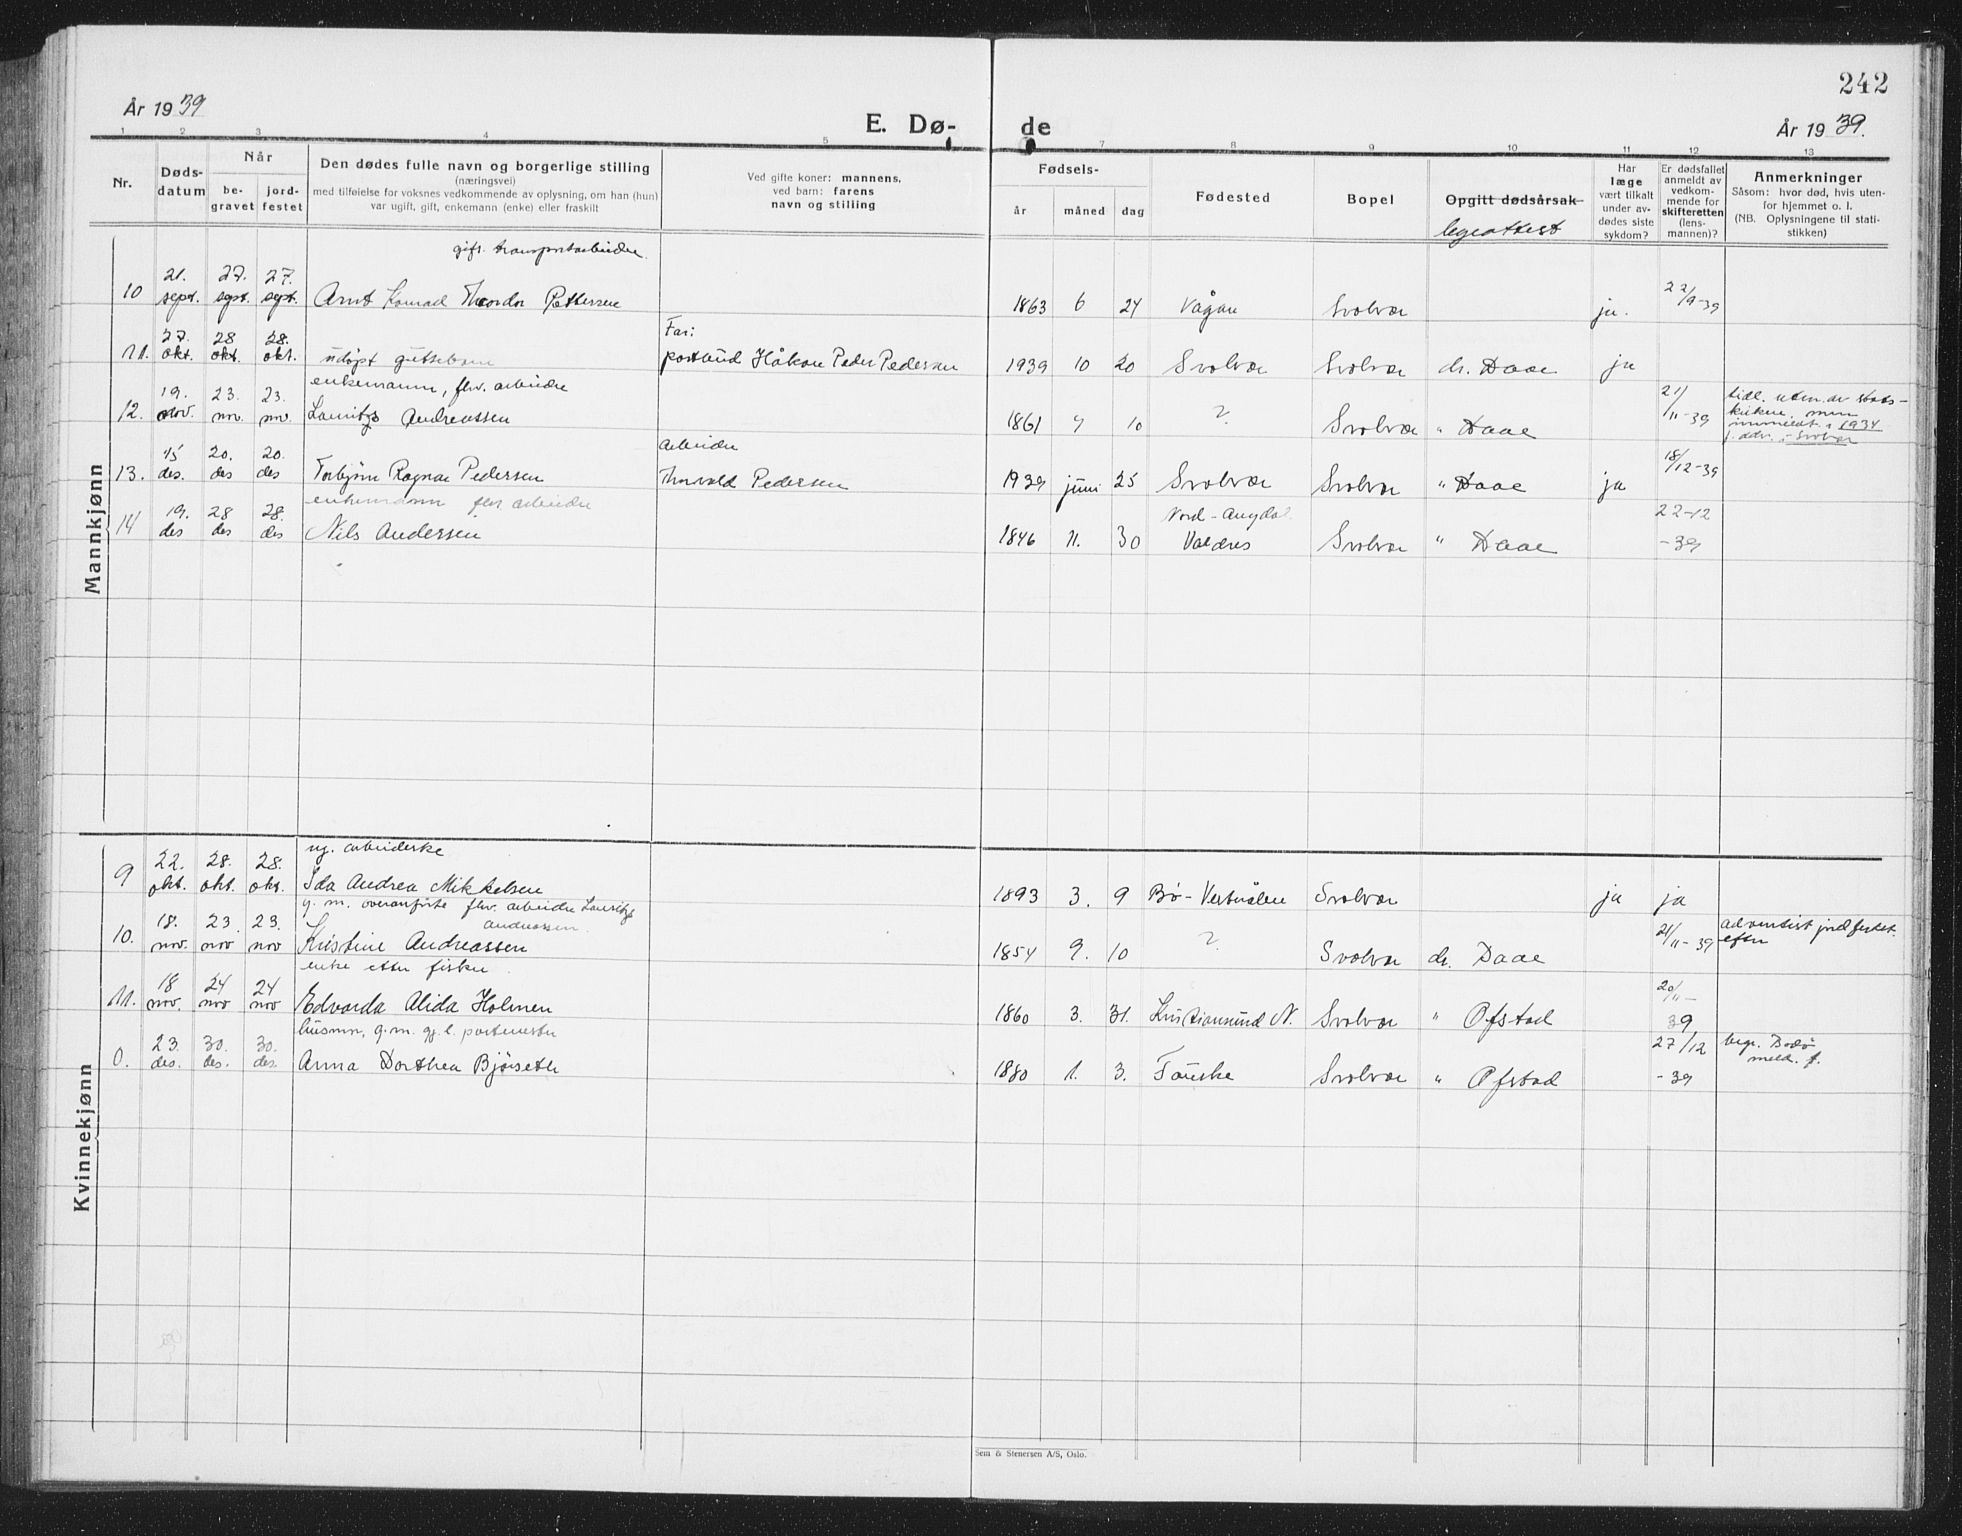 242
År 1939
E. Dø-
de
År 1939.
1 2 3 4 5 7 8 9 10 11 12 13
Nr.
Døds-
datum
Når
be-
gravet
jord-
festet
Den dødes fulle navn og borgerlige stilling
(næringsvei)
med tilføielse for voksnes vedkommende av oplysning, om han (hun)
var ugift, gift, enkemann (enke) eller fraskilt
Ved gifte koner: mannens,
ved barn: farens
navn og stilling
Fødsels-
år måned dag
Fødested
Bopel
Opgitt dødsårsak
legeattest
Har
læge
vært tilkalt
under av-
dødes siste
sykdom?
Er dødsfallet
anmeldt av
vedkom-
mende for
skifteretten
(lens-
mannen)?
Anmerkninger
Såsom: hvor død, hvis uten-
for hjemmet o. l.
(NB. Oplysningene til stati-
stikken)
Mannkjønn
gift. transportarbeider
21. 27. 27.
10 sept. sept. sept. Arnt Konrad Theodor Pettersen 1863 6 24 Vågan Svolvær ja. 22/9-39
27. 28 28. Far:
11. okt. okt. okt. udøpt guttebarn postbud Håkon Peder Pedersen 1939 10 20 Svolvær Svolvær dr. Daae ja
19. 23. 23. enkemann, fhv. arbeider 21/11-39 tidl. utm. av stats-
12. nov. nov. nov. Lauritz Andreassen 1861 7 10 ? Svolvær " Daae
kirken, men
innmeldt i 1934
i adv. i Svolvær
15 20. 20. arbeider 18/12-39
13. des. des des Torbjørn Ragnar Pedersen Thorvald Pedersen 1939 juni 25 Svolvær Svolvær " Daae ja
19. 28 28. enkemann fhv arbeider Nord-Aurdal 22-12
14 des des des Nils Andersen 1846 11. 30 Valdres Svolvær " Daae -39
Kvinnekjønn
ug. arbeiderske
22. 28. 28.
9 okt. okt. okt. Ida Andrea Mikkelsen 1893 3. 9 Bø-Vesterålen Svolvær ja ja
g. m. fhv. arbeider Lauritz
18. 23 23. Andreassen. 21/11-39 adventist jordfestet
10. nov. nov nov Kristine Andreassen 1854 9. 10 ? Svolvær dr. Daae
18 24 24 enke etter fisker 20/11-
11. nov. nov nov Edvarda Alida Holmen 1860 3. 31. Kristiansund N. Svolvær " Ofstad 39
23. 30. 30. husmor, g. m. postmester 27/12 begr. Bodø
0. des. des. des. Anna Dorthea Bjørseth 1880 1. 3. Fauske Svolvær " Ofstad -39
Sem & Stenersen A/S, Oslo.